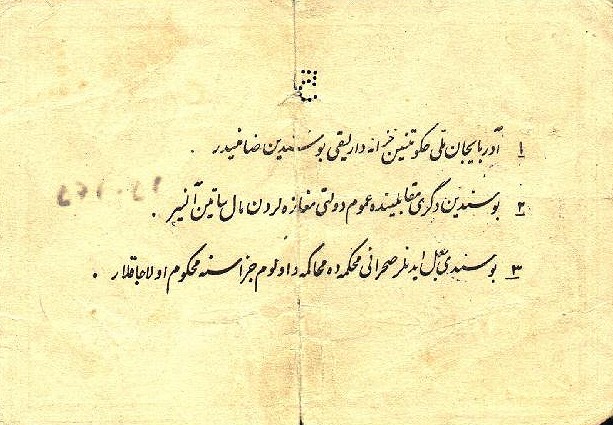 ١ آذربایجان ملی حکومتینین خزانه دارلیقی بو سندین ضامنیدیر .
٢ بو سندین دگری مقابلینده عموم دولتی مغازه لردن مال ساتین آلنیر .
٣ بو سندی جعل ایدنلر صحرائی محکمه ده محاکمه و اولوم جزاسنه محکوم اولاجاقلار .